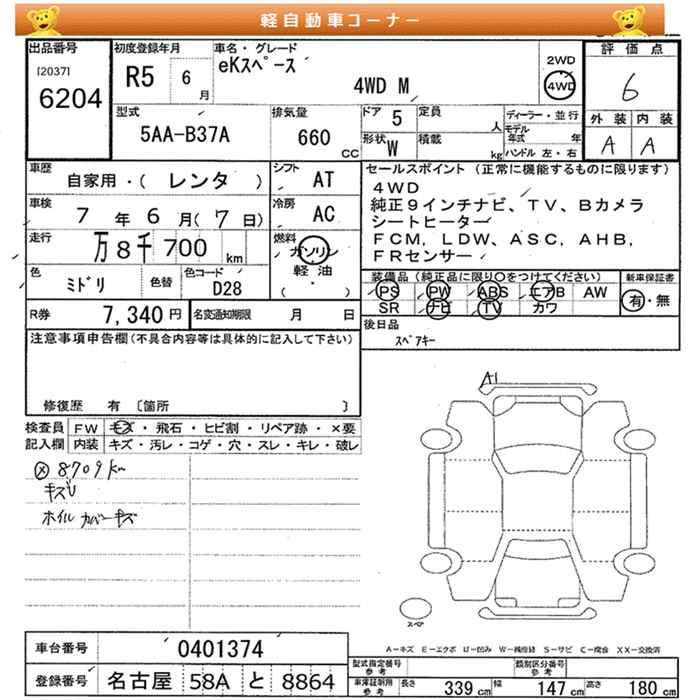 軽自動車コーナー
出品番号
[2037]
6204
初度登録年月
R5 6月
車名・グレード
eKスペース
4WD M
2WD
4WD
評価点
6
外装 内装
A A
型式
5AA-B37A
排気量
660
CC
ドア 5
定員 人
形状 W
積載 kg
ディーラー・並行
モデル年式 年
ハンドル 左・右
車歴
自家用・( レンタ )
シフト
AT
車検
7 年 6 月( 7 日)
冷房
AC
走行
万 8 千 700 km
燃料
ガソリン
軽油
( ・ )
色
ミドリ
色替
色コード
D28
R券
7,340 円
名変通知期限 月 日
セールスポイント (正常に機能するものに限ります)
4WD
純正9インチナビ、TV、Bカメラ
シートヒーター
FCM, LDW, ASC, AHB,
FRセンサー
装備品 (純正品に限り○をつけてください)
PS PW ABS エアB AW
SR ナビ TV カワ
新車保証書
有・無
後日品
スペアキー
注意事項申告欄(不具合内容等は具体的に記入して下さい)
修復歴 有 〔箇所 〕
検査員記入欄
FW キズ・飛石・ヒビ割・リペア跡・×要
内装 キズ・汚レ・コゲ・穴・スレ・キレ・破レ
8709km
キズU
ホイルカバーキズ
A1
スペア
A-キズ E-エクボ U-凹み W-補修跡 S-サビ C-腐食 XX-交換済
車台番号
0401374
登録番号
名古屋 58A と 8864
型式指定番号 参考
類別区分番号 参考
車庫証明用 参考
長さ 339 cm 幅 147 cm 高さ 180 cm